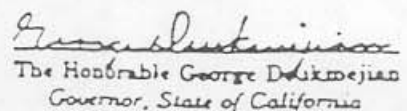 George Deukmejian
The Honorable George Deukmejian
Governor, State of California